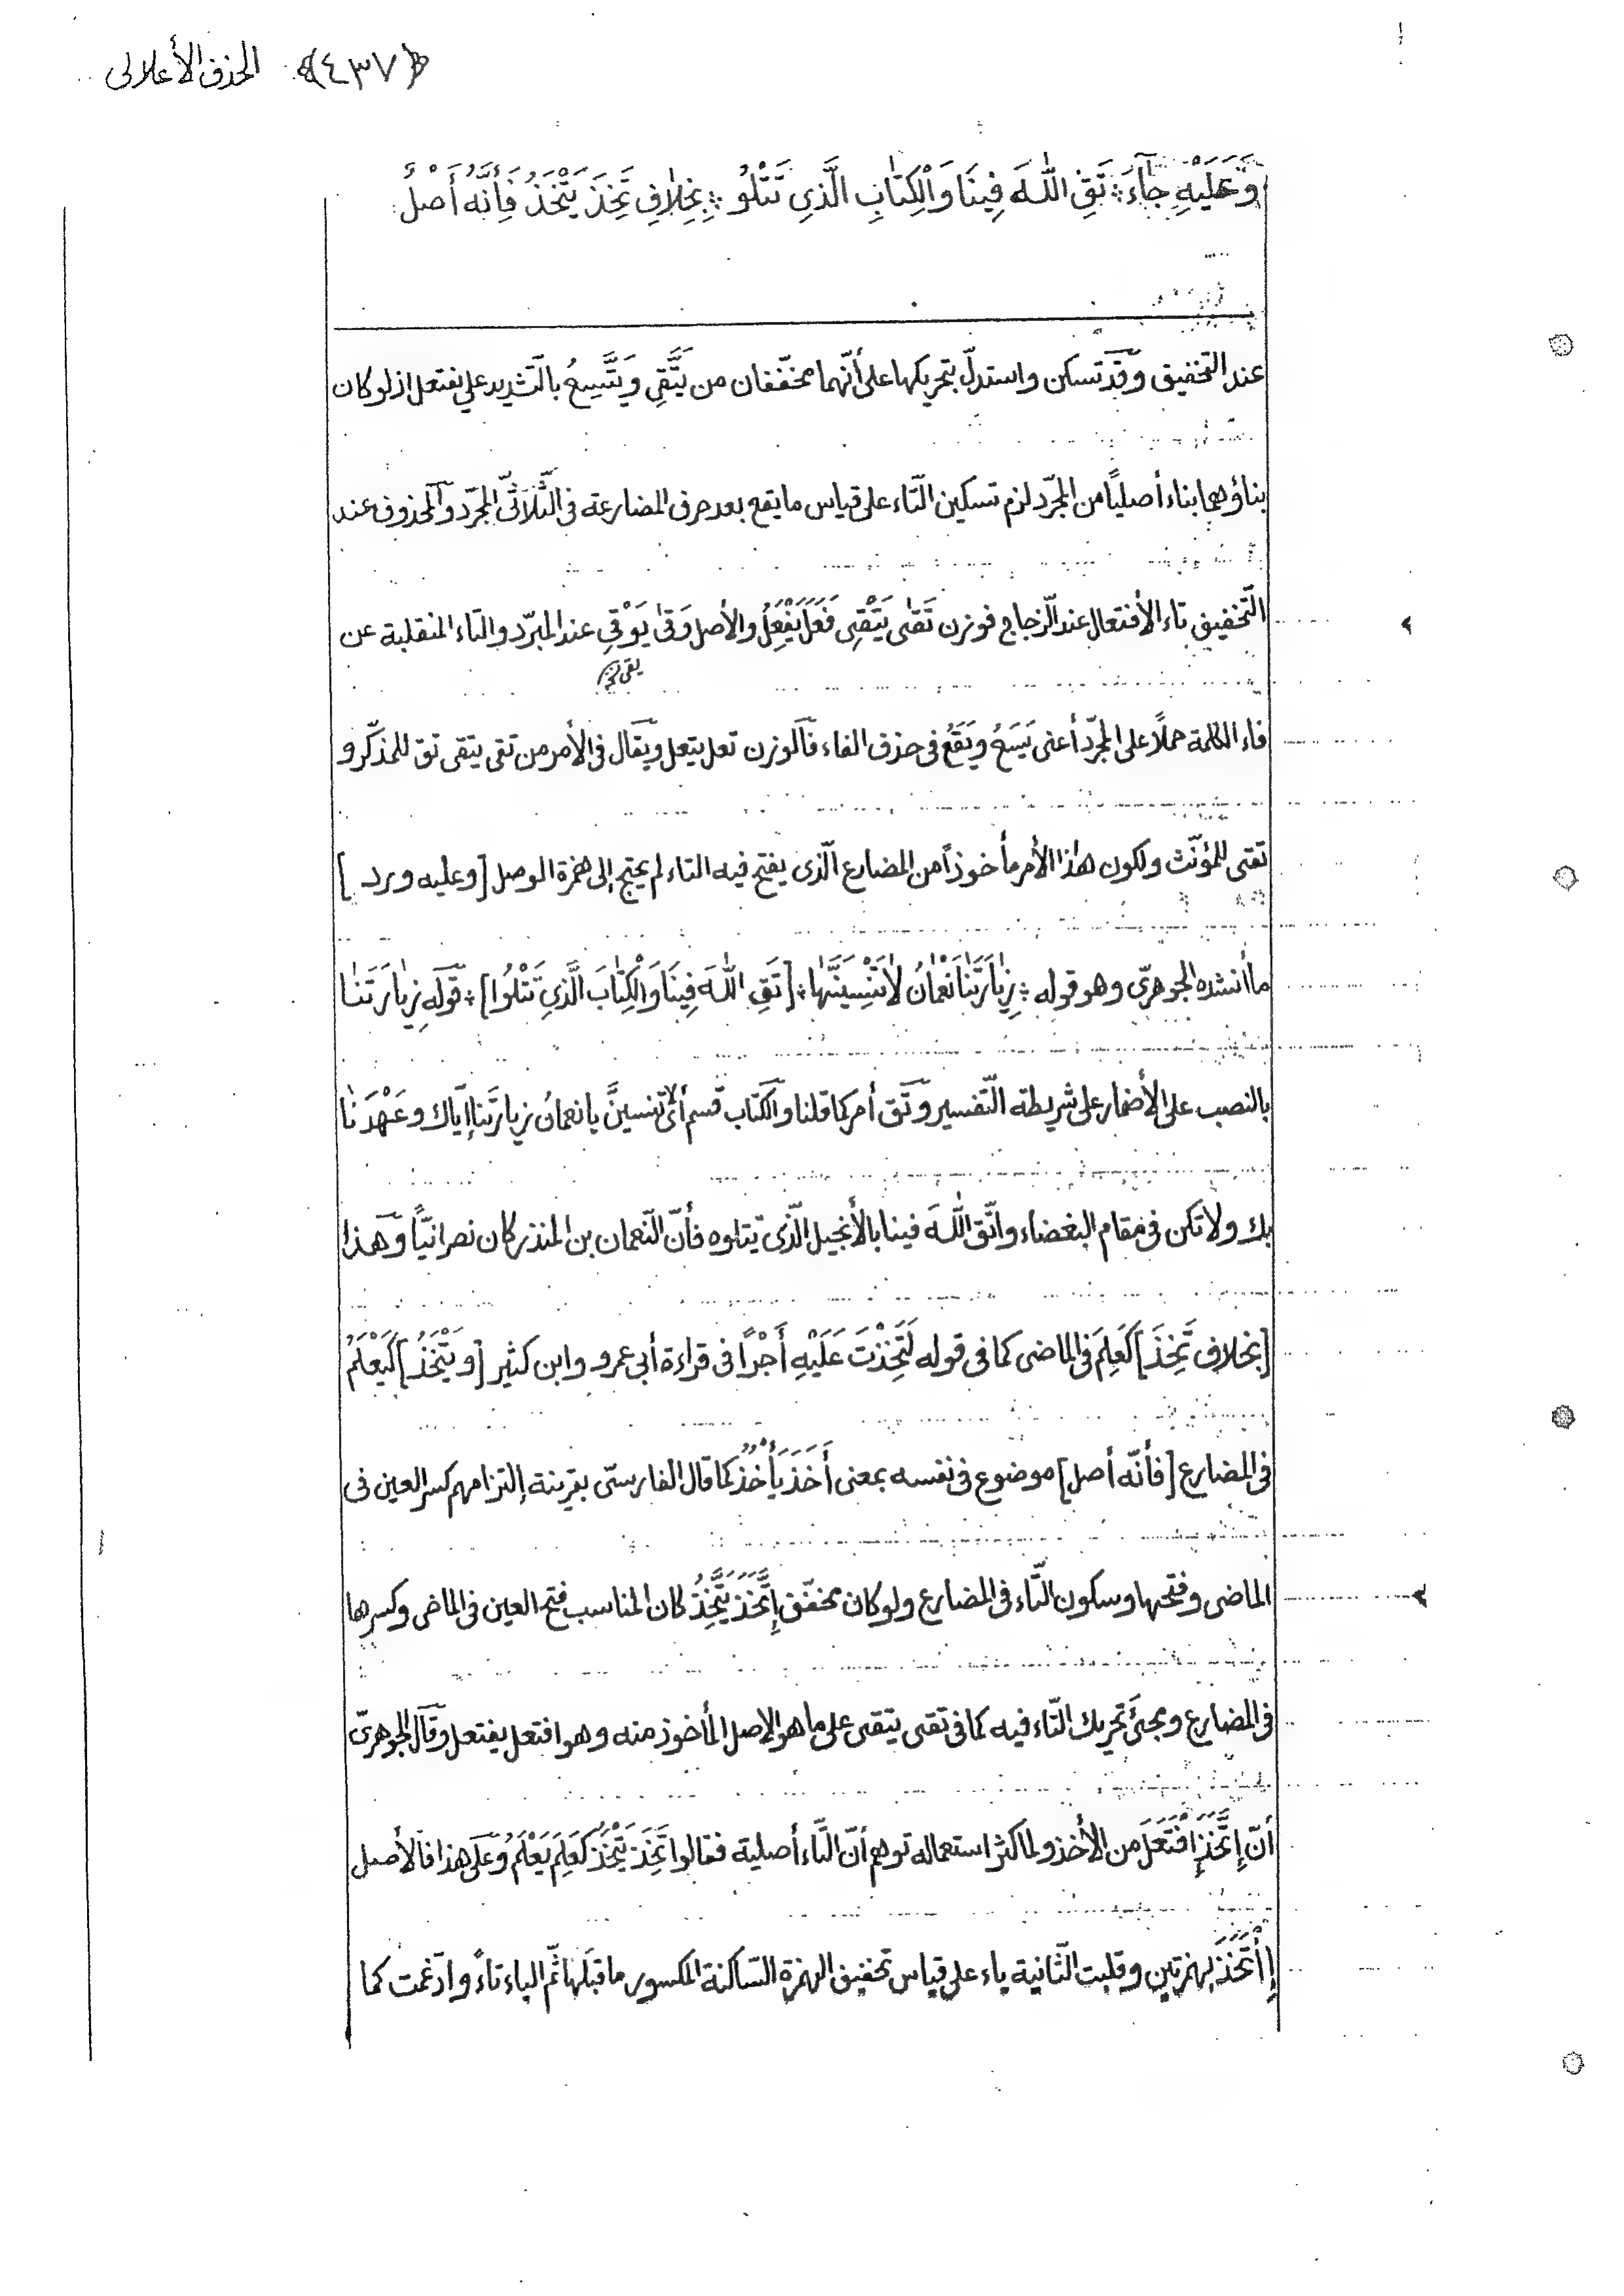 ﴿٤٣٧﴾ الحذف الأعلالى
وَعَلَيْهِ جٰآءَ ؞ تَقِ اللّٰهَ فِينَا وَالْكِتٰابِ الَّذِي تَتْلُو ؞ بِخِلٰافِ تَخِذَ يَتْخَذُ فَإِنَّهُ أَصْلٌ
عند التخفيف وقد تسكن واستدلّ بتحريكها على أنّهما مخفّفان من يَتَّقِي ويَتَّسِعُ بالتّشديد على يفتعل اذ لو كان
بناؤهما بناء أصليًا من المجرّد لزم تسكين التّاء على قياس ما يقع بعد حرف المضارعة فى الثّلاثىّ المجرّد والمحذوف عند
التّخفيف تاء الأفتعال عند الزّجاج فوزن تَقٰى يَتْقِى فَعَلَ يَفْعِلُ والأصل وَقٰى يَوْقِي عند المبرّد والتاء المنقلبة عن
فاء الكلمة حملًا على المجرّد أعنى يَسَعُ ويَقَعُ فى حذف الفاء فالوزن تعل يتعل ويقال فى الأمر من تقى يتقى تق للمذكّر و
تقى للمؤنّث ولكون هذا الأمر مأخوذاً من المضارع الّذى يفتح فيه التاء لم يحتج إلى همزة الوصل [وعليه ورد]
ما أنشده الجوهرىّ وهو قوله ؞ زِيٰارَتَنٰا نَعْمٰانُ لٰا تَنْسِيَنَّهٰا ؞ [تَقِ اللّٰهَ فِينَا وَالْكِتٰابَ الَّذِي تَتْلُوا] ؞ قوله زِيٰارَتَنٰا
بالنصب على الأضمار على شريطة التّفسير وتَقِ أمر كما قلنا والكتاب قسم أى لا تنسينَّ يا نعمانُ زيارتَنا إيّاك وعَهْدَنٰا
بك ولا تكن فى مقام البغضاء واتّق اللّٰهَ فينا بالأنجيل الّذى تتلوه فأنّ النّعمان بن المنذر كان نصرانيًّا وهذا
[بخلاف تَخِذَ] كَعَلِمَ فى الماضى كما فى قوله لَتَخِذْتَ عَلَيْهِ أَجْرًا فى قراءة أبى عمرو وابن كثير [ويَتْخَذُ] كَيَعْلَمُ
فى المضارع [فأنّه أصل] موضوع فى نفسه بمعنى أَخَذَ يَأْخُذُ كما قال الفارسىّ بقرينة إلتزامهم كسر العين فى
الماضى وفتحها وسكون التّاء فى المضارع ولو كان مخفّف إِتَّخَذَ يَتَّخِذُ لكان المناسب فتح العين فى الماضى وكسرها
فى المضارع ومجئ تحريك التّاء فيه كما فى تقى يتقى على ما هو الاصل المأخوذ منه وهو افتعل يفتعل وقال الجوهرىّ
أنّ إِتَّخَذَ إِفْتَعَلَ من الأخذ ولما كثر استعماله توهم أنّ التّاء أصلية فقالوا تَخِذَ يَتْخَذُ كَعَلِمَ يَعْلَمُ وعلى هذا فالأصل
إِأْتَخَذَ بهمزتين وقلبت الثّانية ياء على قياس تخفيف الهمزة السّاكنة المكسور ما قبلها ثمّ الياء تاءً وادّغمت كما